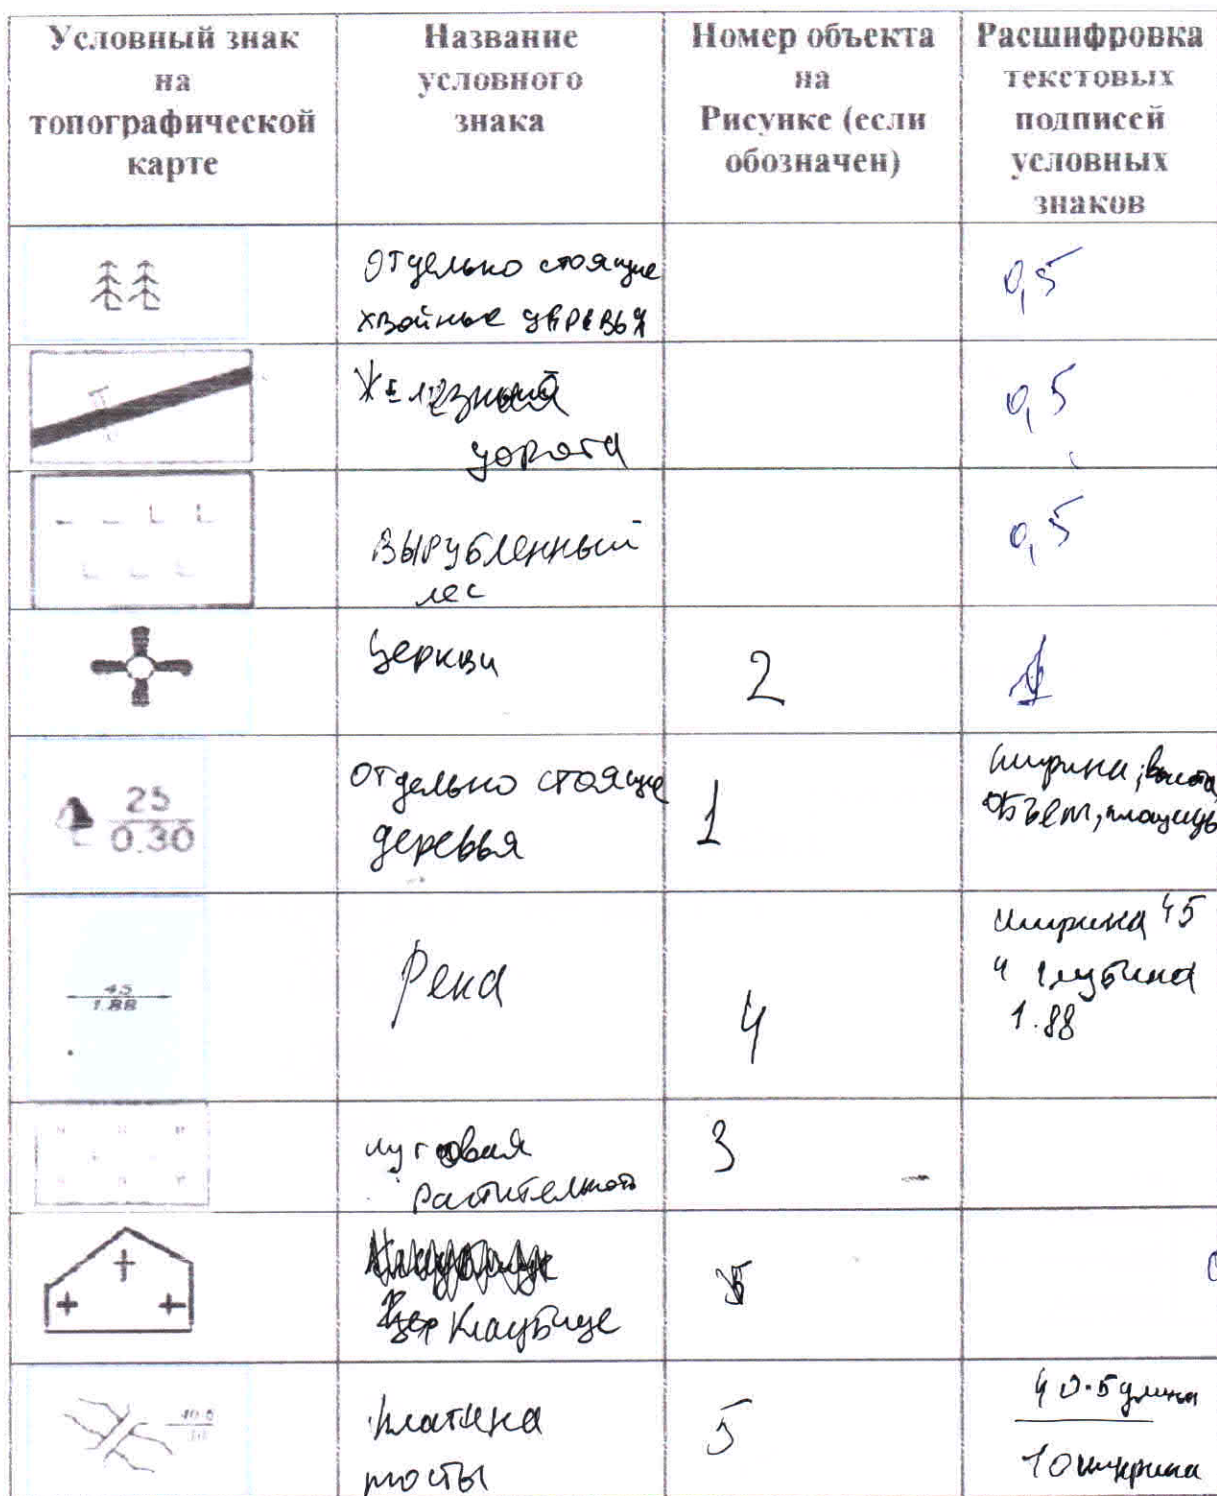 Условный знак
на
топографической
карте
Название
условного
знака
Номер объекта
на
Рисунке (если
обозначен)
Расшифровка
текстовых
подписей
условных
знаков
Отдельно стоящие
хвойные деревья
0,5
Железный
дорога
0,5
Вырубленный
лес
0,5
Церкви
2
1
25
0.30
Отдельно стоящие
деревья
1
ширина, высота,
объем, площадь
45
1.88
Река
4
ширина 45
и глубина
1.88
луговая
растительность
3
Кладбище
5
40.5
10
Платина
мосты
5
40.5 длина
10 ширина